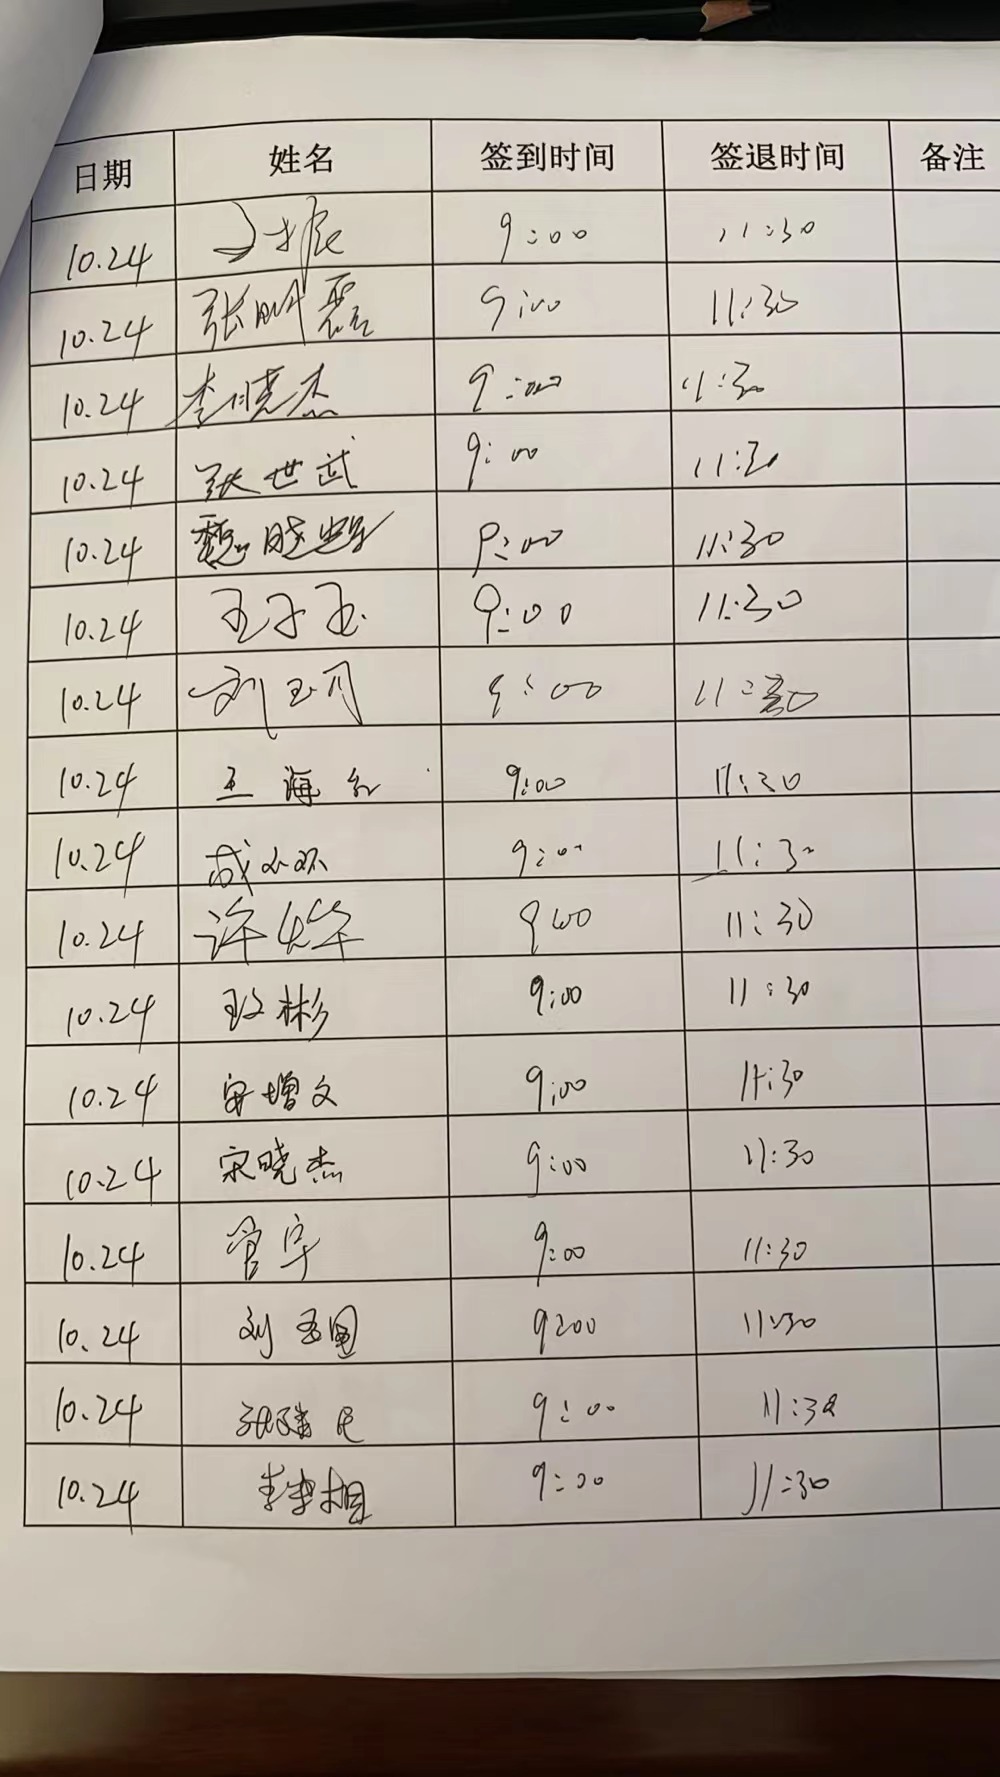 日期 姓名 签到时间 签退时间 备注
10.24 9:00 11:30
10.24 张明霞 9:00 11:30
10.24 李晓杰 9:00 11:30
10.24 张世武 9:00 11:30
10.24 魏晓 9:00 11:30
10.24 王子玉 9:00 11:30
10.24 刘玉月 9:00 11:30
10.24 王海红 9:00 11:30
10.24 成小环 9:00 11:30
10.24 许 9:00 11:30
10.24 彬 9:00 11:30
10.24 安增文 9:00 11:30
10.24 宋晓杰 9:00 11:30
10.24 管宇 9:00 11:30
10.24 刘 9:00 11:30
10.24 张 民 9:00 11:30
10.24 李 9:00 11:30